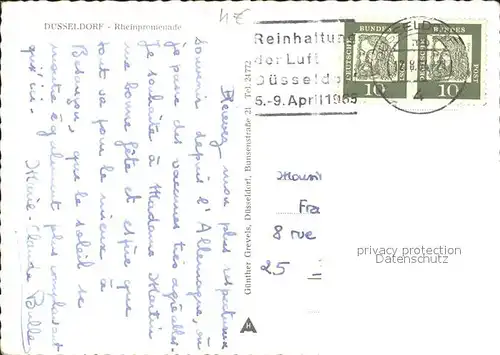 DÜSSELDORF - Rheinpromenade
4€
Recevez mon plus respectueux
souvenir depuis l'Allemagne, où
je passe des vacances très agréables
Je souhaite à Madame Martin
une bonne fête et espère que
tout va pour le mieux à
Besançon, que le soleil se
montre également plus complaisant
qu'ici.
Marie-Claude
Günther Grevels, Düsseldorf, Bunsenstraße 21 · Tel. 24772
Reinhaltung
der Luft
Düsseldo
5.-9. April 1965
DEUTSCHE BUNDESPOST
10
DEUTSCHE BUNDESPOST
10
4
Fra
8 rue
25
privacy protection
Datenschutz